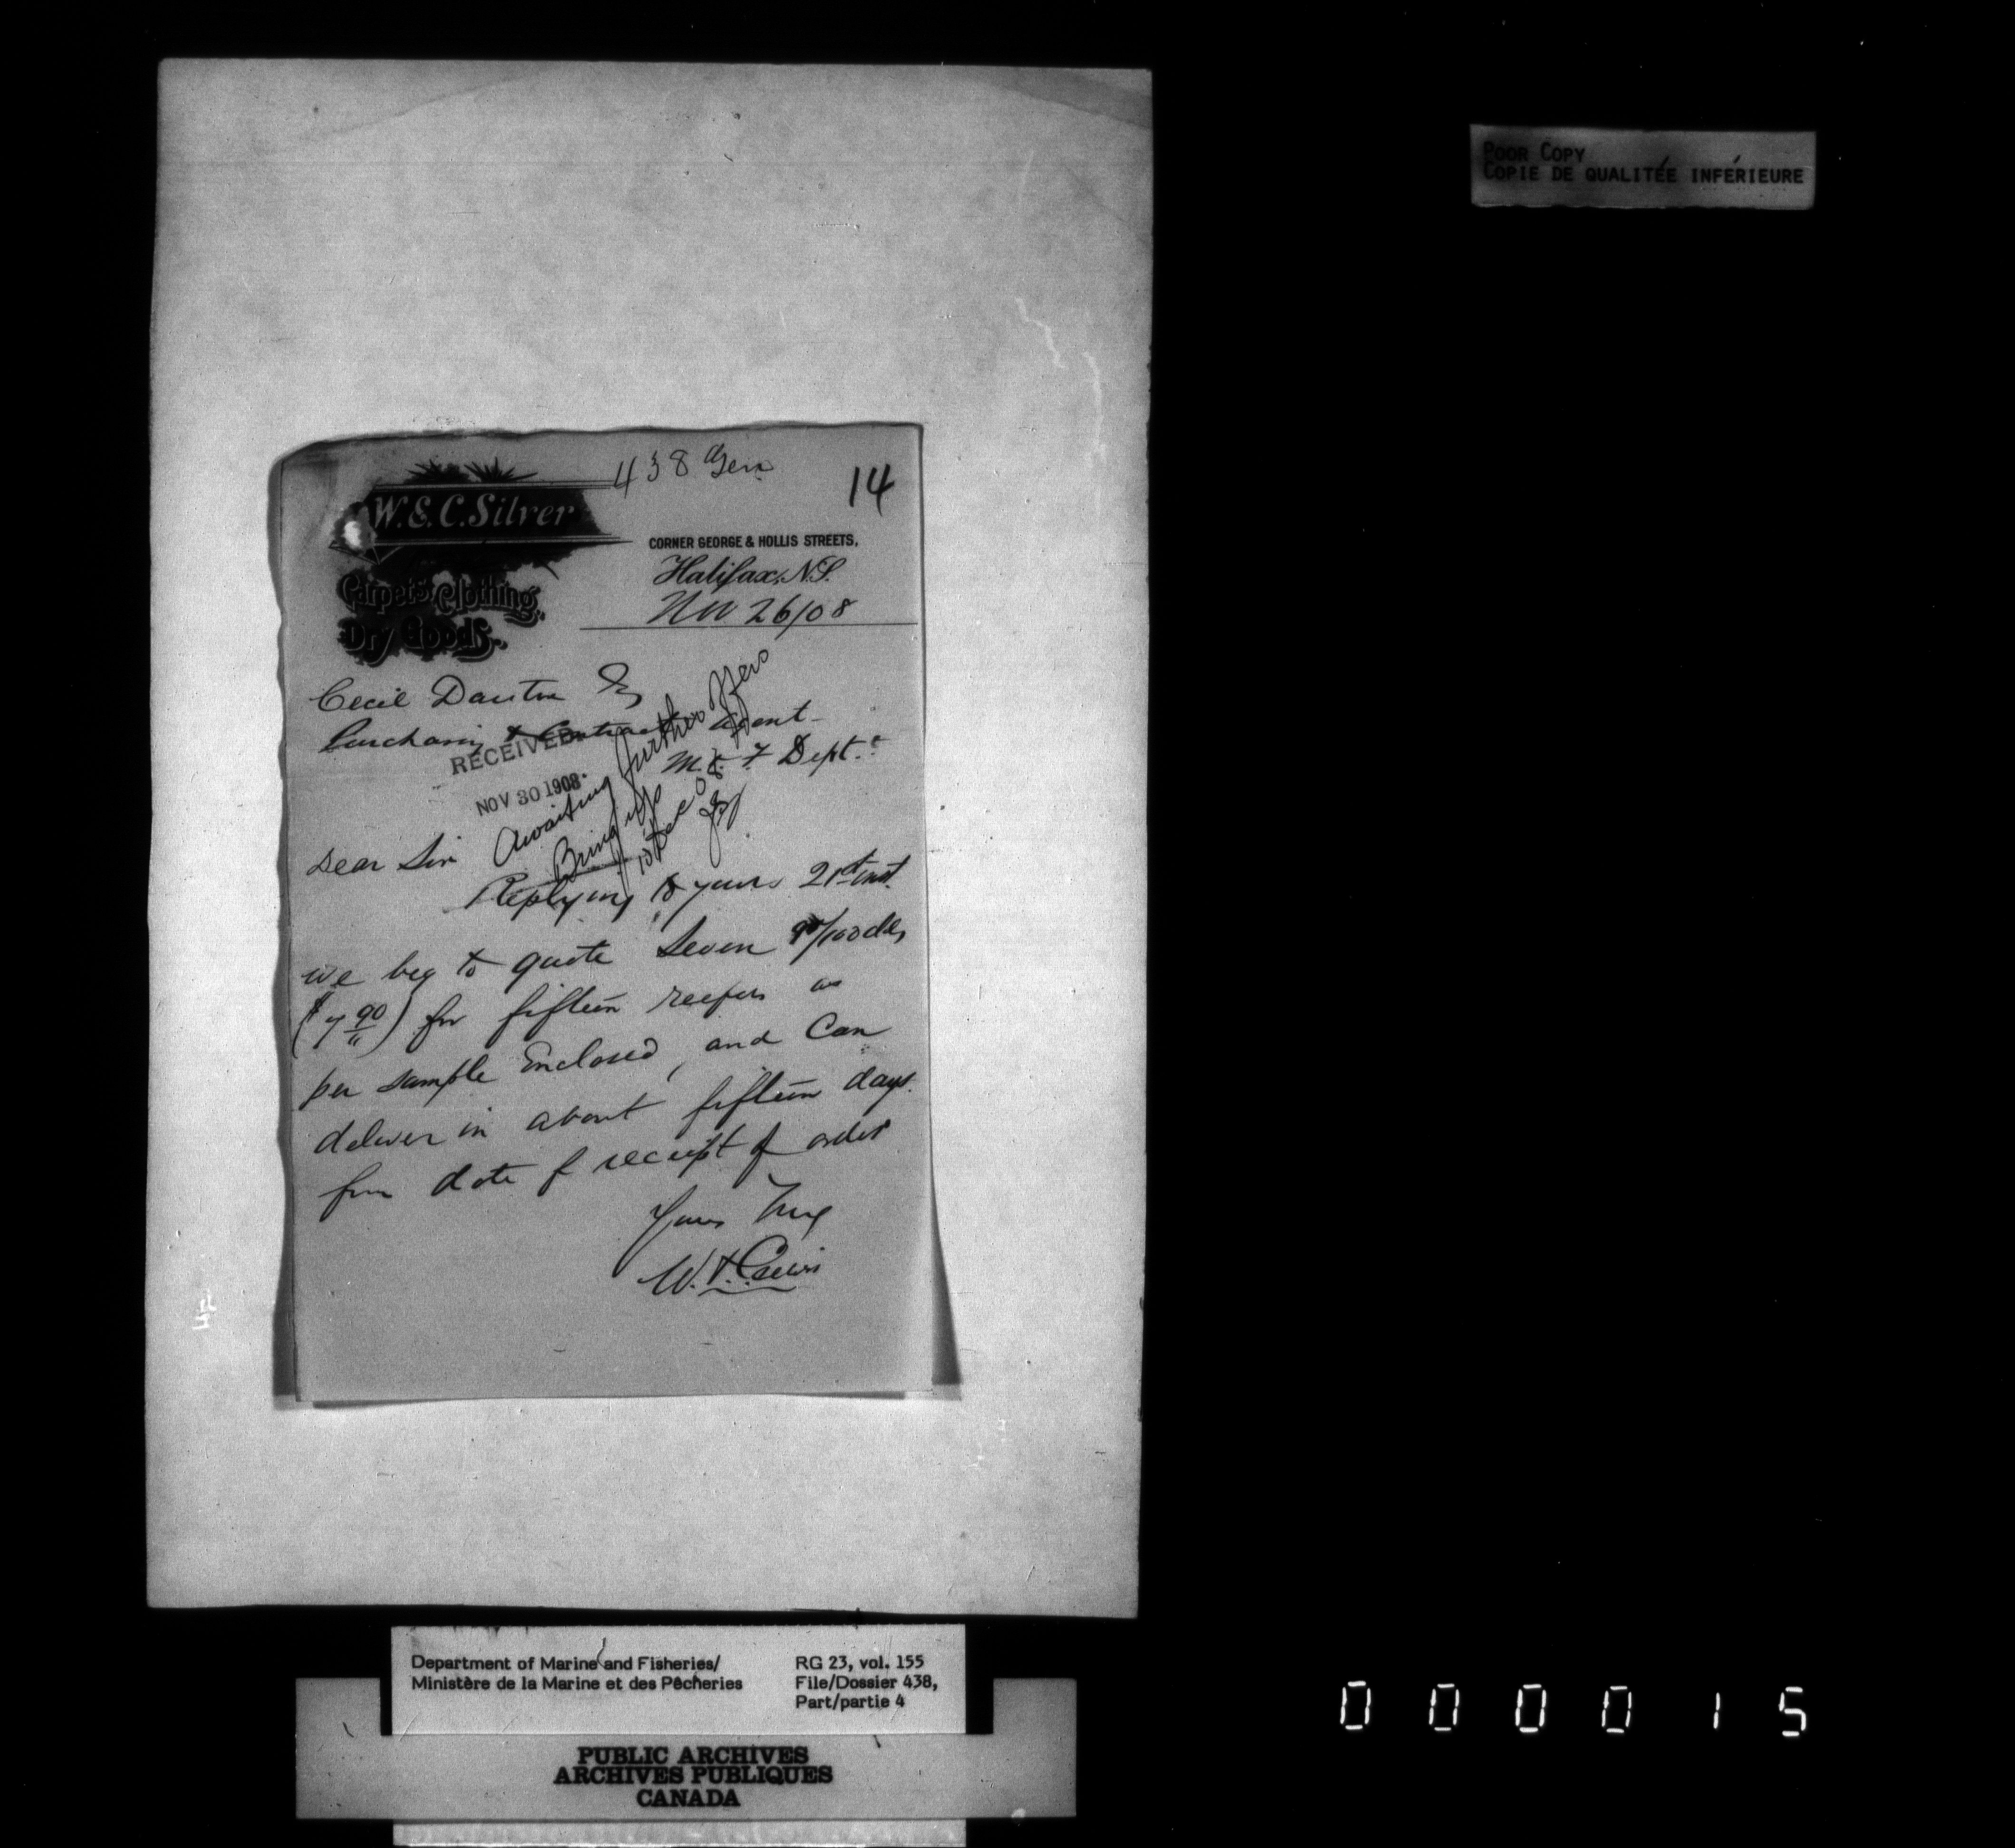 POOR COPY
COPIE DE QUALITÉE INFÉRIEURE
438 Gen
14
W. & C. Silver
Carpets. Clothing,
Dry Goods.
CORNER GEORGE & HOLLIS STREETS,
Halifax, N.S.
Nov 26/08
Cecil Doutre Esq
Purchasing & Contract agent
M. & F Dept.
RECEIVED
NOV 30 1908
Awaiting further offers
Bring up
10 Dec 08
Dear Sir
Replying to yours 21st inst.
we beg to quote Seven 90/100 dls,
($7 90) for fifteen reefers as
per sample Enclosed, and Can
deliver in about fifteen days.
from date of receipt of order
Yours Truly
W. & C. Silver
Department of Marine and Fisheries/
Ministère de la Marine et des Pêcheries
RG 23, vol. 155
File/Dossier 438,
Part/partie 4
PUBLIC ARCHIVES
ARCHIVES PUBLIQUES
CANADA
000015